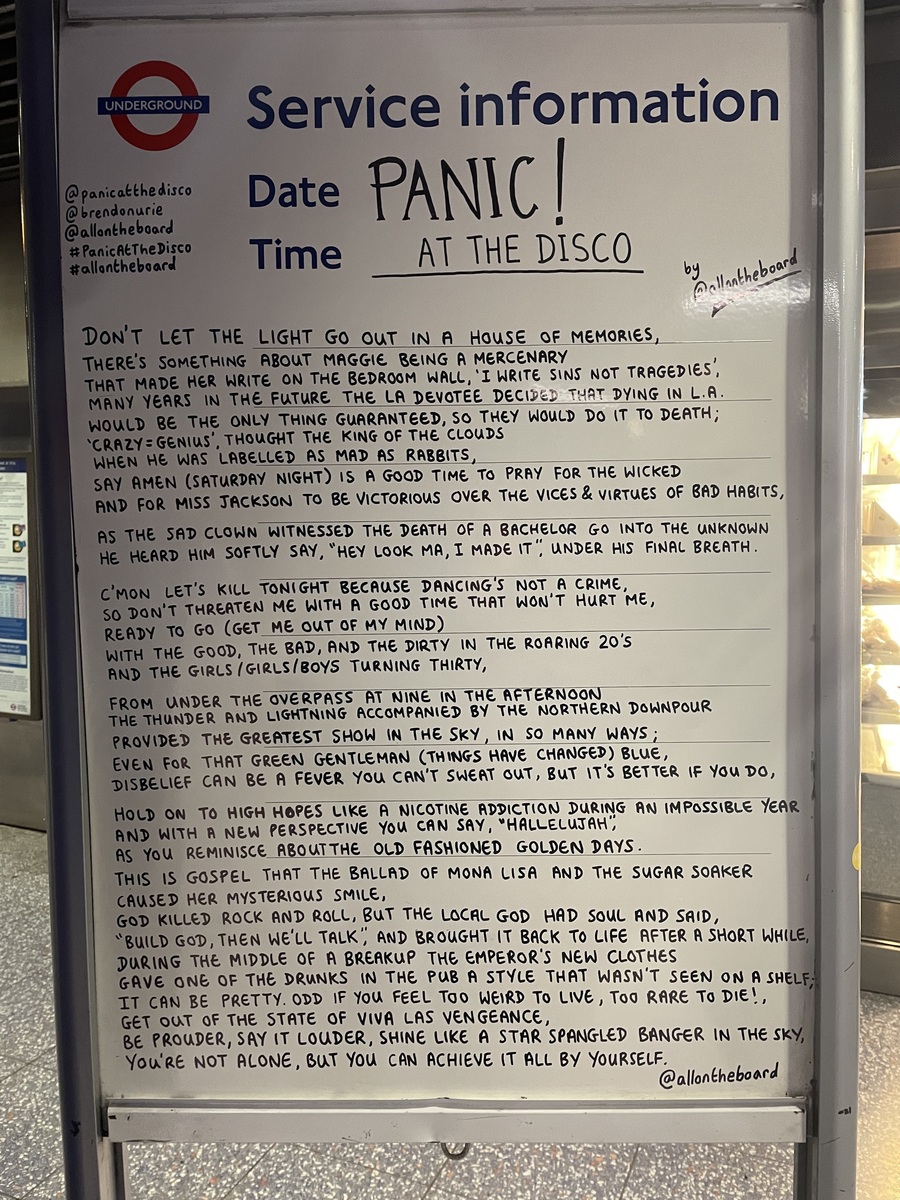 UNDERGROUND
Service information
Date PANIC!
Time AT THE DISCO
@panicatthedisco
@brendonurie
@allontheboard
#PanicAtTheDisco
#allontheboard
by
@allontheboard
DON'T LET THE LIGHT GO OUT IN A HOUSE OF MEMORIES,
THERE'S SOMETHING ABOUT MAGGIE BEING A MERCENARY
THAT MADE HER WRITE ON THE BEDROOM WALL, 'I WRITE SINS NOT TRAGEDIES',
MANY YEARS IN THE FUTURE THE LA DEVOTEE DECIDED THAT DYING IN L.A.
WOULD BE THE ONLY THING GUARANTEED, SO THEY WOULD DO IT TO DEATH;
'CRAZY=GENIUS', THOUGHT THE KING OF THE CLOUDS
WHEN HE WAS LABELLED AS MAD AS RABBITS,
SAY AMEN (SATURDAY NIGHT) IS A GOOD TIME TO PRAY FOR THE WICKED
AND FOR MISS JACKSON TO BE VICTORIOUS OVER THE VICES & VIRTUES OF BAD HABITS,
AS THE SAD CLOWN WITNESSED THE DEATH OF A BACHELOR GO INTO THE UNKNOWN
HE HEARD HIM SOFTLY SAY, "HEY LOOK MA, I MADE IT", UNDER HIS FINAL BREATH.
C'MON LET'S KILL TONIGHT BECAUSE DANCING'S NOT A CRIME,
SO DON'T THREATEN ME WITH A GOOD TIME THAT WON'T HURT ME,
READY TO GO (GET ME OUT OF MY MIND)
WITH THE GOOD, THE BAD, AND THE DIRTY IN THE ROARING 20'S
AND THE GIRLS/GIRLS/BOYS TURNING THIRTY,
FROM UNDER THE OVERPASS AT NINE IN THE AFTERNOON
THE THUNDER AND LIGHTNING ACCOMPANIED BY THE NORTHERN DOWNPOUR
PROVIDED THE GREATEST SHOW IN THE SKY, IN SO MANY WAYS;
EVEN FOR THAT GREEN GENTLEMAN (THINGS HAVE CHANGED) BLUE,
DISBELIEF CAN BE A FEVER YOU CAN'T SWEAT OUT, BUT IT'S BETTER IF YOU DO,
HOLD ON TO HIGH HOPES LIKE A NICOTINE ADDICTION DURING AN IMPOSSIBLE YEAR
AND WITH A NEW PERSPECTIVE YOU CAN SAY, "HALLELUJAH",
AS YOU REMINISCE ABOUT THE OLD FASHIONED GOLDEN DAYS.
THIS IS GOSPEL THAT THE BALLAD OF MONA LISA AND THE SUGAR SOAKER
CAUSED HER MYSTERIOUS SMILE,
GOD KILLED ROCK AND ROLL, BUT THE LOCAL GOD HAD SOUL AND SAID,
"BUILD GOD, THEN WE'LL TALK", AND BROUGHT IT BACK TO LIFE AFTER A SHORT WHILE,
DURING THE MIDDLE OF A BREAKUP THE EMPEROR'S NEW CLOTHES
GAVE ONE OF THE DRUNKS IN THE PUB A STYLE THAT WASN'T SEEN ON A SHELF;
IT CAN BE PRETTY. ODD IF YOU FEEL TOO WEIRD TO LIVE, TOO RARE TO DIE!,
GET OUT OF THE STATE OF VIVA LAS VENGEANCE,
BE PROUDER, SAY IT LOUDER, SHINE LIKE A STAR SPANGLED BANGER IN THE SKY,
YOU'RE NOT ALONE, BUT YOU CAN ACHIEVE IT ALL BY YOURSELF.
@allontheboard